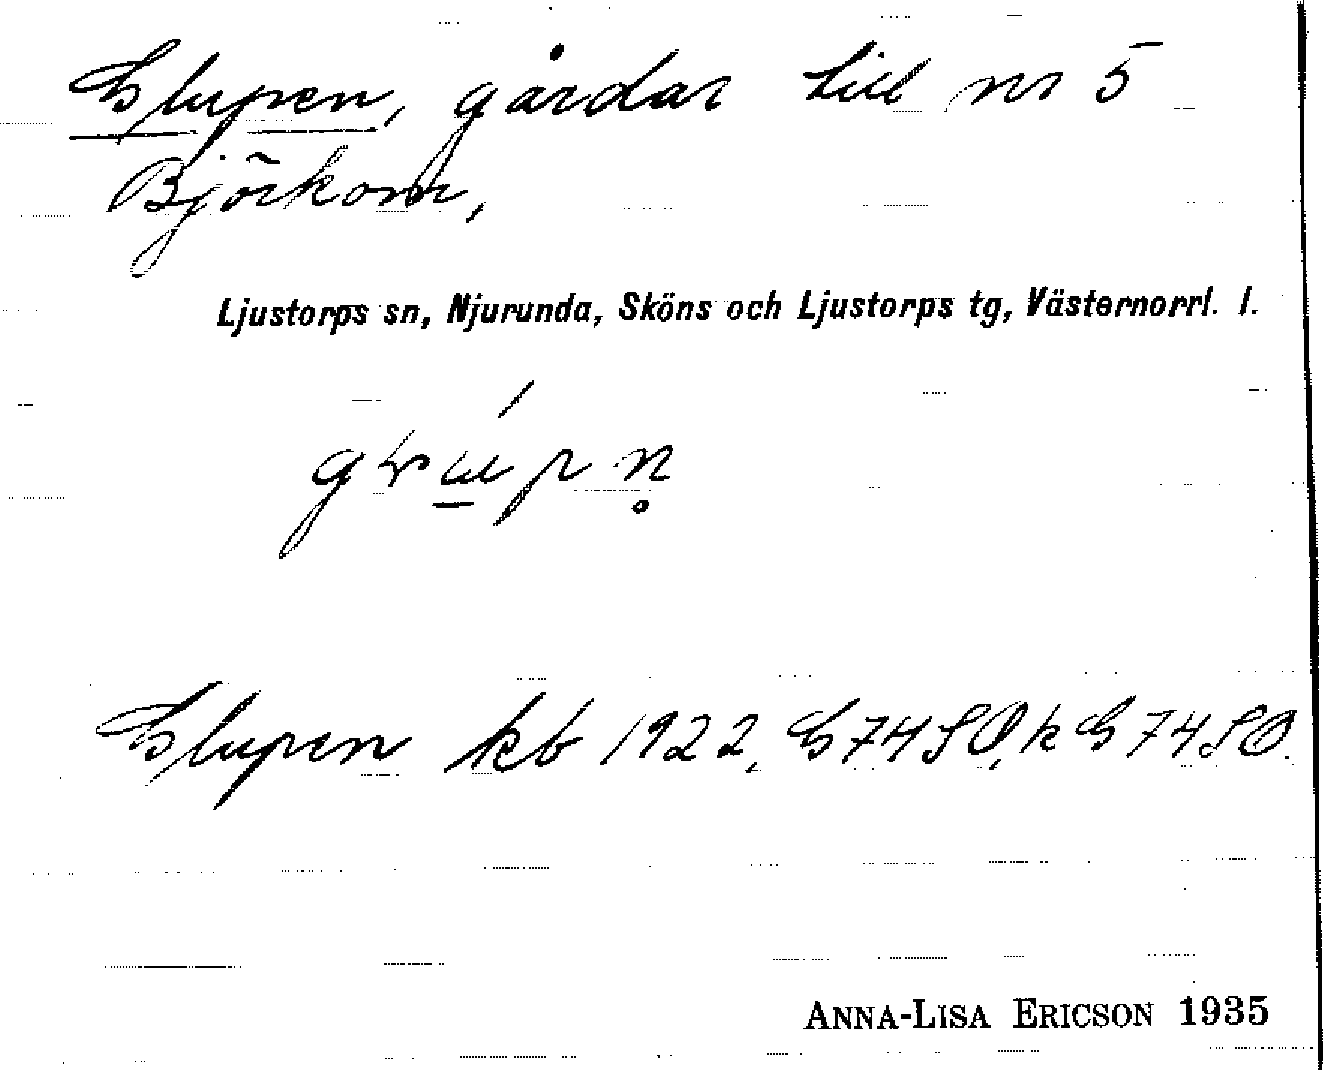 Glupen, gårdar till nr 5
Björkom,
Ljustorps sn, Njurunda, Sköns och Ljustorps tg, Västernorrl. l.
gɽú̲pn̥
Glupen kb 1922, G74SO, k G74SO.
ANNA-LISA ERICSON 1935